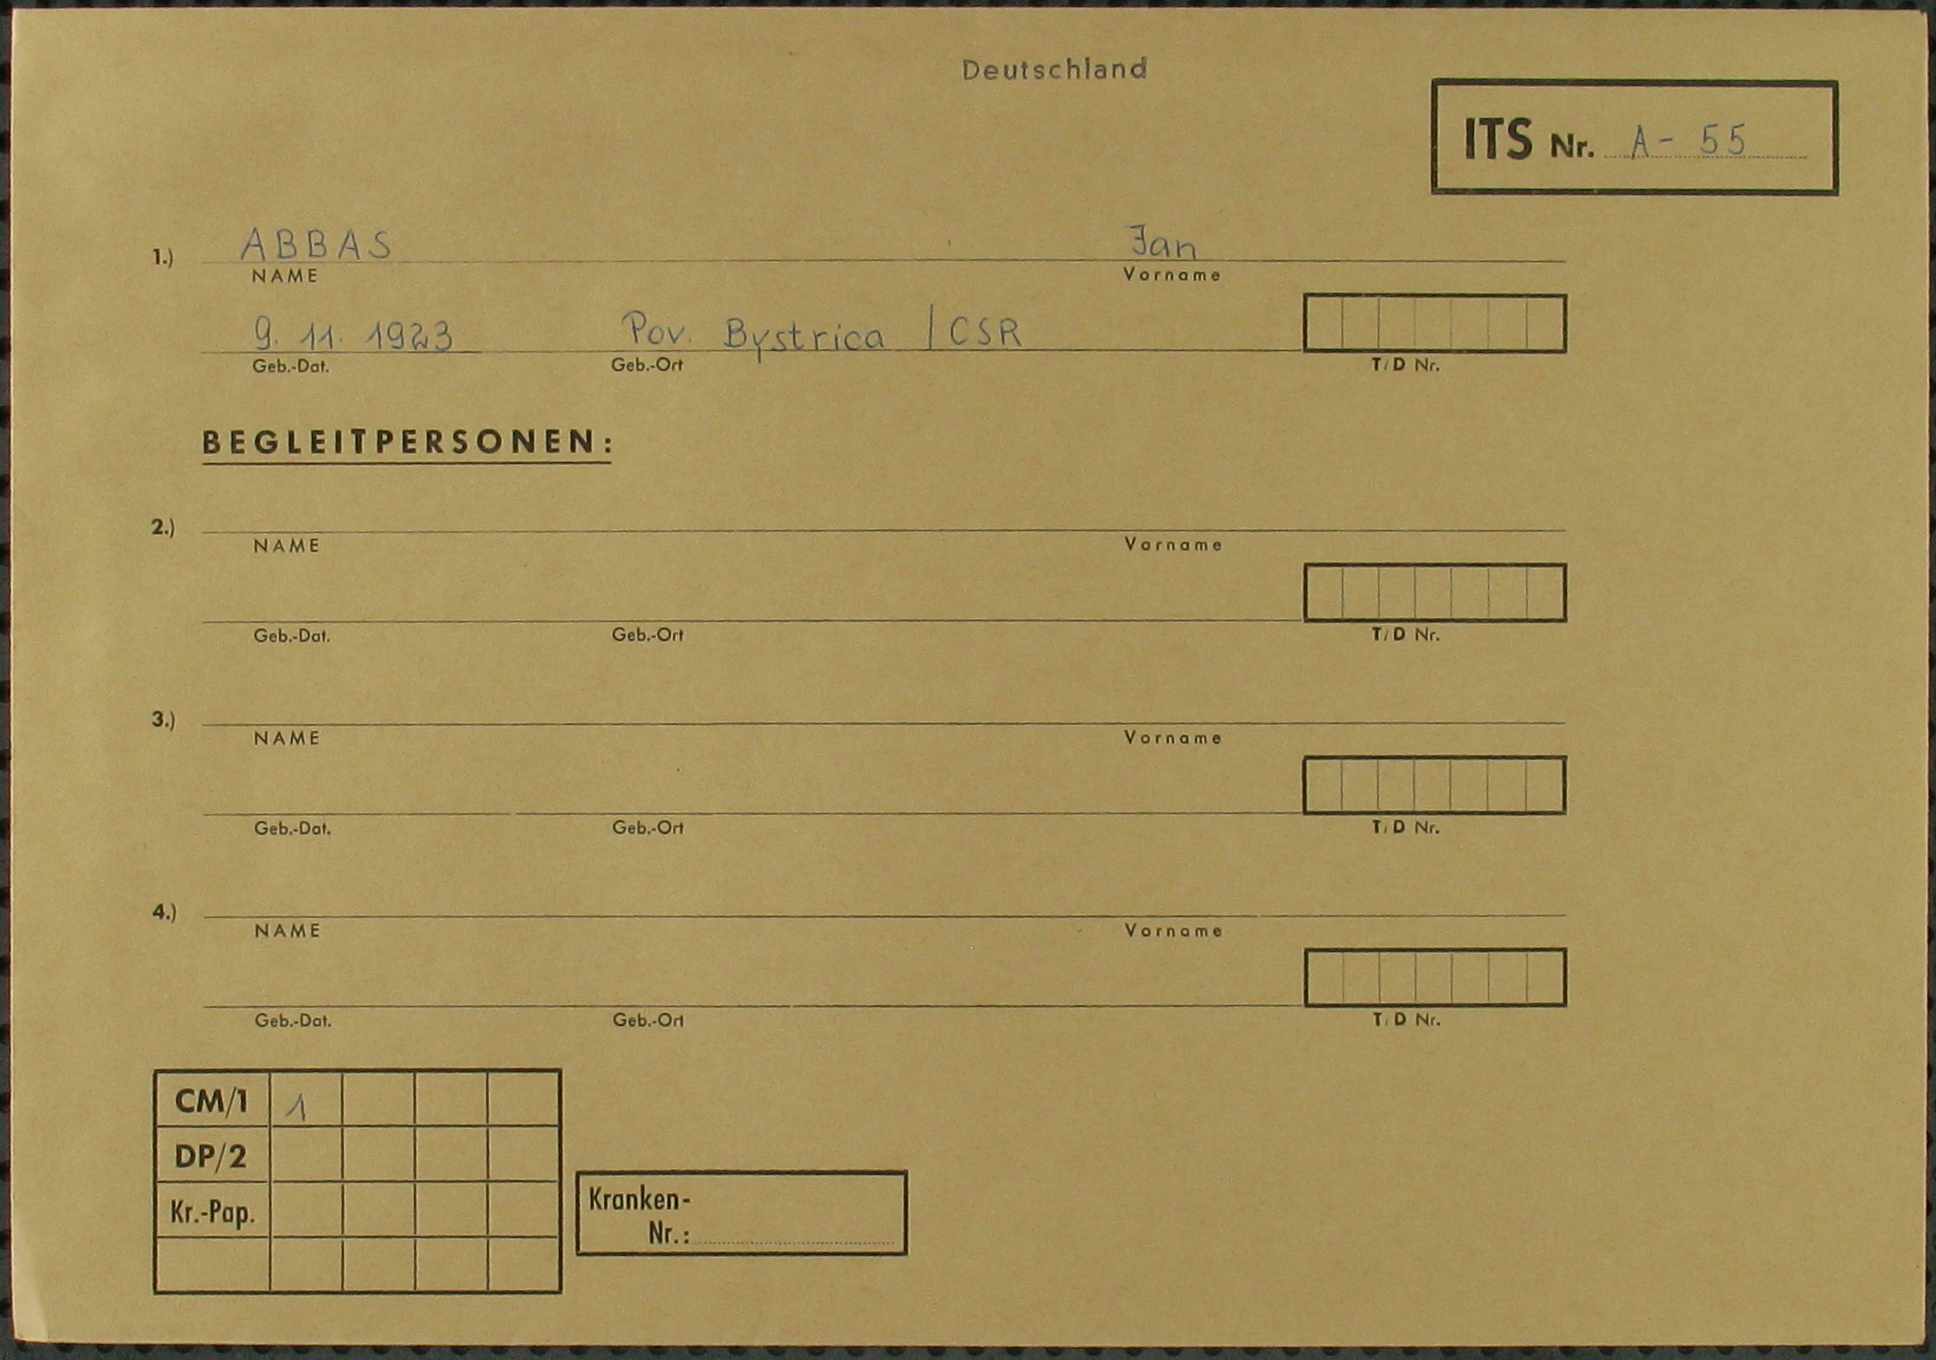 Deutschland
ITS Nr. A - 55
1.) ABBAS Jan
NAME Vorname
9. 11. 1923 Pov. Bystrica / CSR
Geb.-Dat. Geb.-Ort T/D Nr.
BEGLEITPERSONEN:
2.)
NAME Vorname
Geb.-Dat. Geb.-Ort T/D Nr.
3.)
NAME Vorname
Geb.-Dat. Geb.-Ort T/D Nr.
4.)
NAME Vorname
Geb.-Dat. Geb.-Ort T/D Nr.
CM/1 1
DP/2
Kr.-Pap.
Kranken-
Nr.: